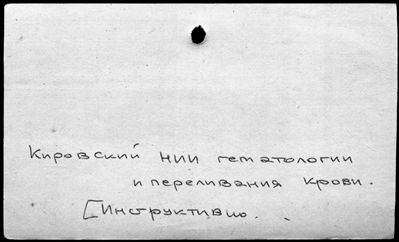 Кировский НИИ гематологии
и переливания крови.
[Инструктивно.